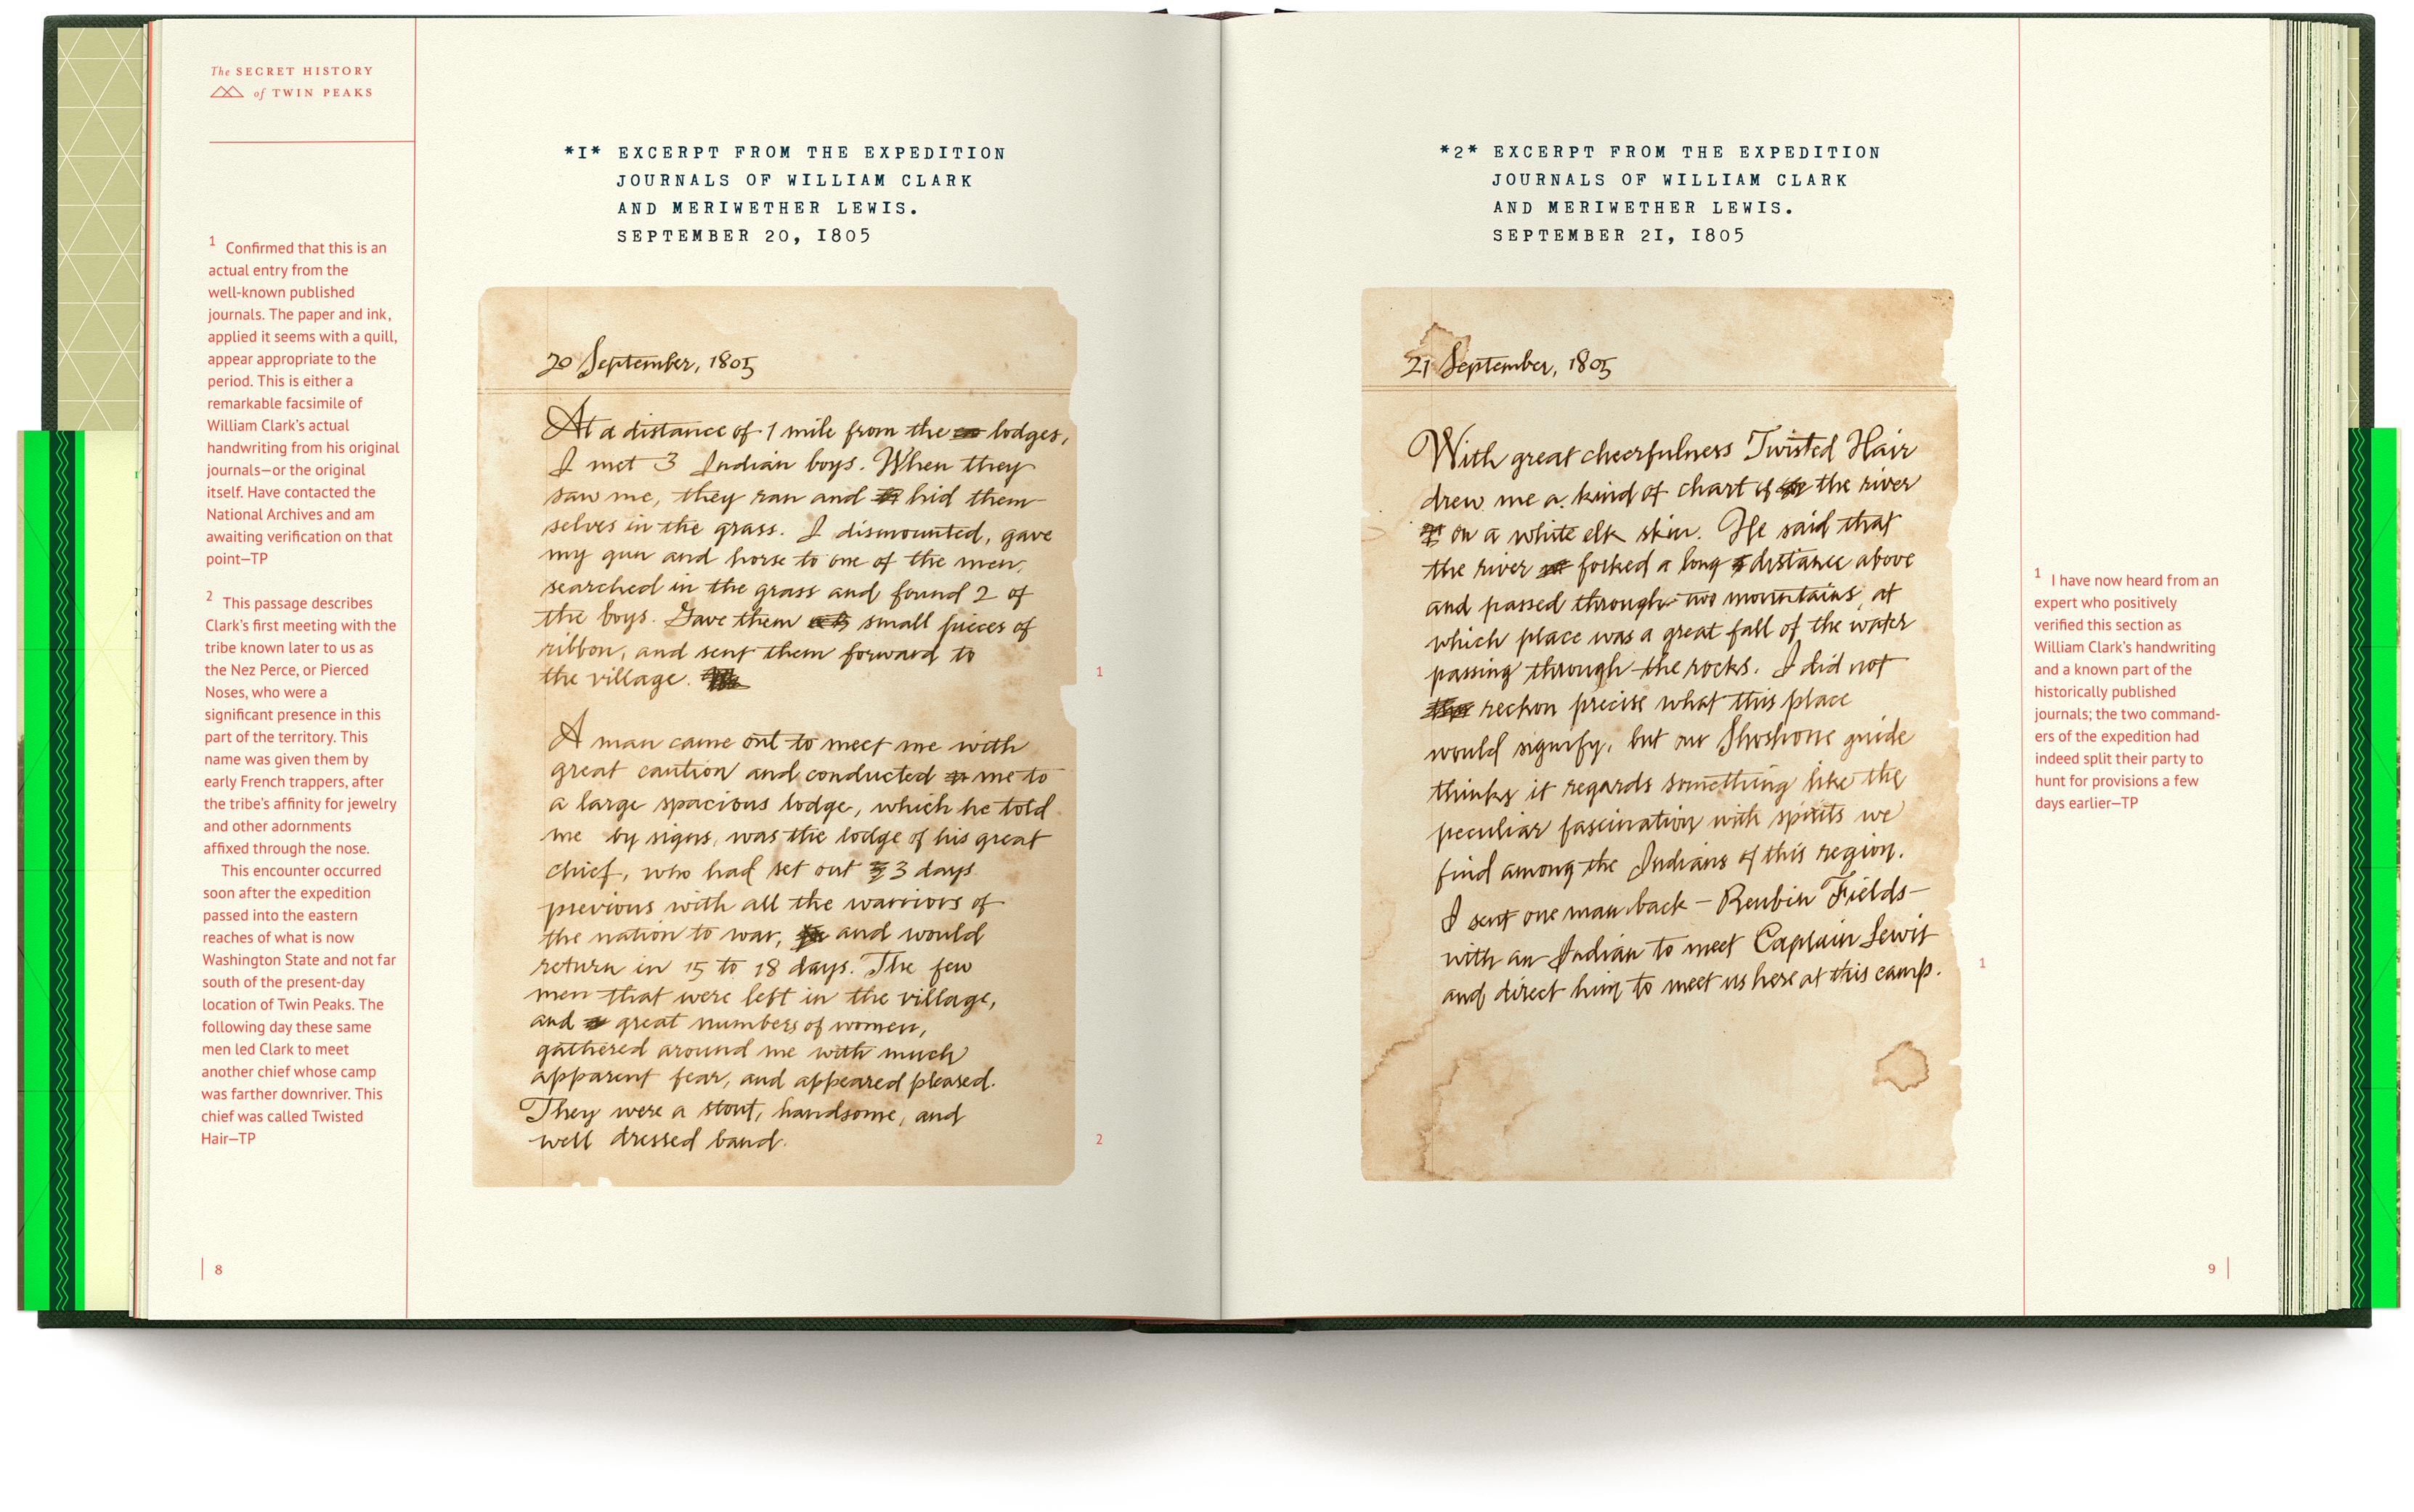 The SECRET HISTORY
of TWIN PEAKS
1 Confirmed that this is an
actual entry from the
well-known published
journals. The paper and ink,
applied it seems with a quill,
appear appropriate to the
period. This is either a
remarkable facsimile of
William Clark's actual
handwriting from his original
journals—or the original
itself. Have contacted the
National Archives and am
awaiting verification on that
point—TP
2 This passage describes
Clark's first meeting with the
tribe known later to us as
the Nez Perce, or Pierced
Noses, who were a
significant presence in this
part of the territory. This
name was given them by
early French trappers, after
the tribe's affinity for jewelry
and other adornments
affixed through the nose.
This encounter occurred
soon after the expedition
passed into the eastern
reaches of what is now
Washington State and not far
south of the present-day
location of Twin Peaks. The
following day these same
men led Clark to meet
another chief whose camp
was farther downriver. This
chief was called Twisted
Hair—TP
8
*1* EXCERPT FROM THE EXPEDITION
JOURNALS OF WILLIAM CLARK
AND MERIWETHER LEWIS.
SEPTEMBER 20, 1805
20 September, 1805
At a distance of 1 mile from the lodges,
I met 3 Indian boys. When they
saw me, they ran and hid them-
selves in the grass. I dismounted, gave
my gun and horse to one of the men,
searched in the grass and found 2 of
the boys. Gave them small pieces of
ribbon, and sent them forward to
the village.
1
A man came out to meet me with
great caution and conducted me to
a large spacious lodge, which he told
me by signs, was the lodge of his great
chief, who had set out 3 days
previous with all the warriors of
the nation to war, and would
return in 15 to 18 days. The few
men that were left in the village,
and great numbers of women,
gathered around me with much
apparent fear, and appeared pleased.
They were a stout, handsome, and
well dressed band.
2
*2* EXCERPT FROM THE EXPEDITION
JOURNALS OF WILLIAM CLARK
AND MERIWETHER LEWIS.
SEPTEMBER 21, 1805
21 September, 1805
With great cheerfulness Twisted Hair
drew me a kind of chart of the river
on a white elk skin. He said that
the river forked a long distance above
and passed through two mountains, at
which place was a great fall of the water
passing through the rocks. I did not
reckon precise what this place
would signify, but our Shoshone guide
thinks it regards something like the
peculiar fascination with spirits we
find among the Indians of this region.
I sent one man back — Reubin Fields —
with an Indian to meet Captain Lewis
and direct him to meet us here at this camp.
1
1 I have now heard from an
expert who positively
verified this section as
William Clark's handwriting
and a known part of the
historically published
journals; the two command-
ers of the expedition had
indeed split their party to
hunt for provisions a few
days earlier—TP
9